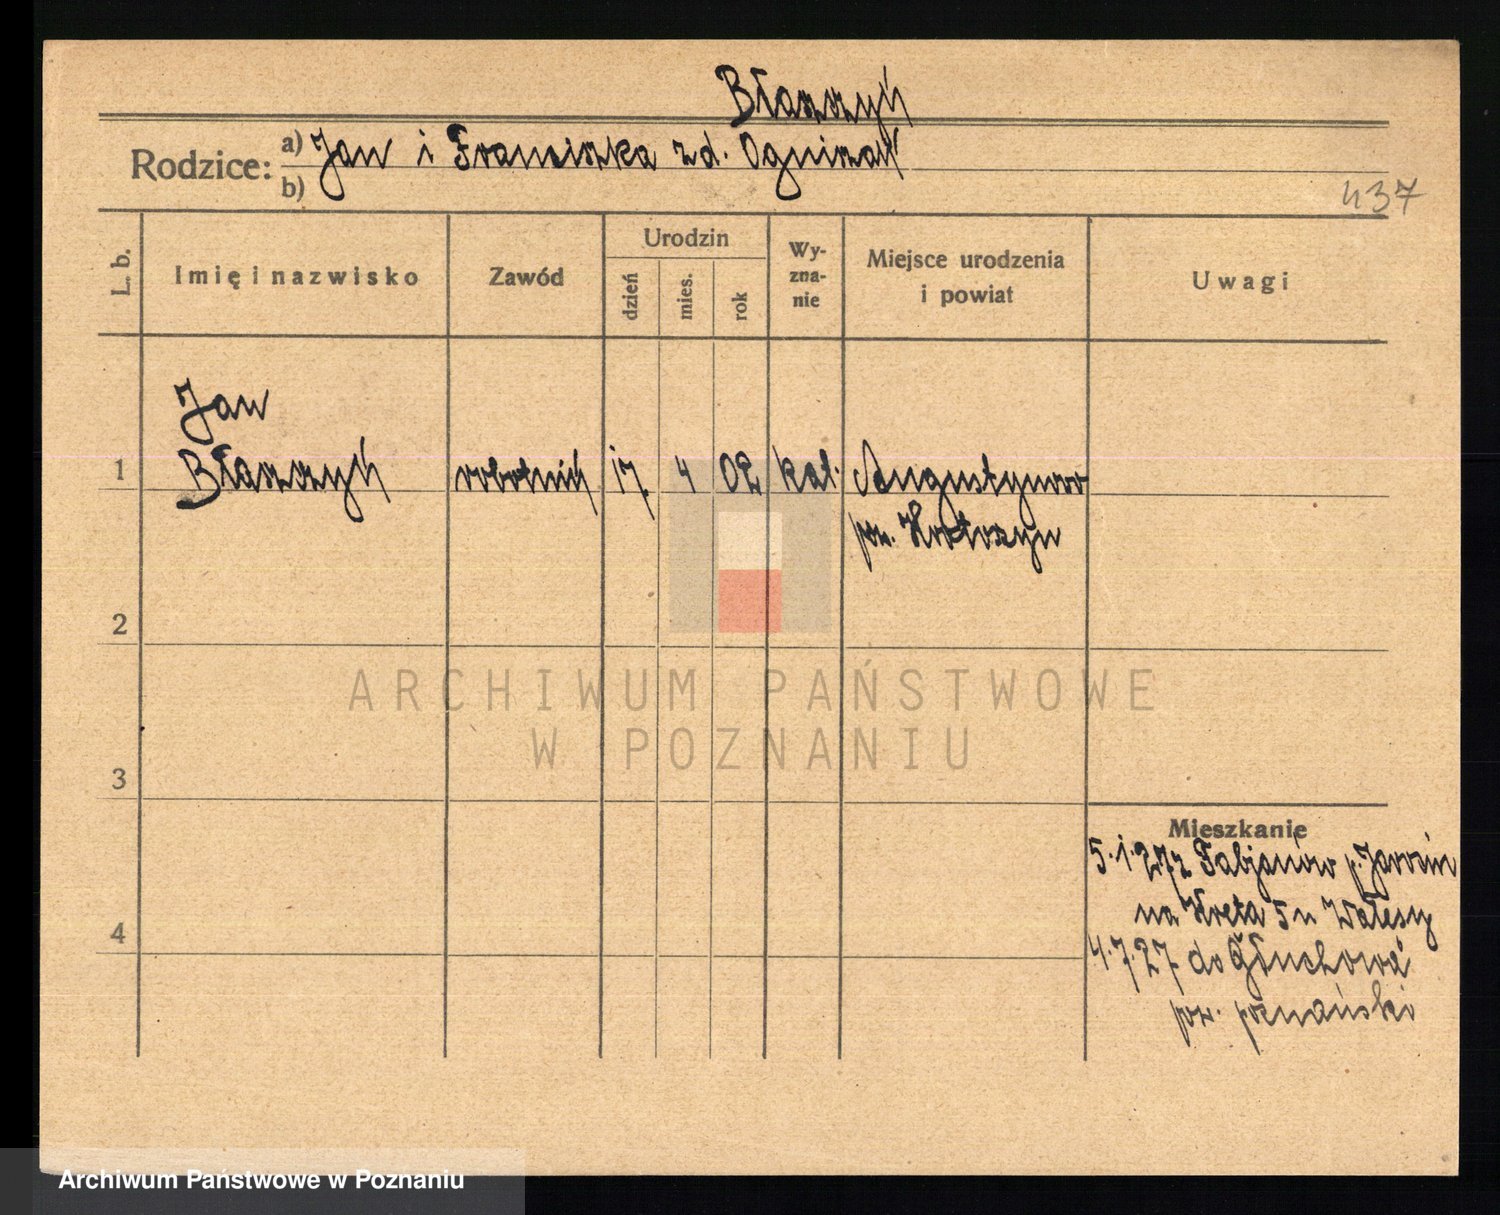 Błaszyń
Rodzice: a) Jan i Franciszka zd. Ogniszak
b)
437
L. b.
Imię i nazwisko
Zawód
Urodzin
dzień
mies.
rok
Wy-
zna-
nie
Miejsce urodzenia
i powiat
Uwagi
Jan
1 Błaszyń robotnik 17. 4 02 kat. Augustynowo
pow. Krotoszyn
2
ARCHIWUM PAŃSTWOWE
W POZNANIU
3
Mieszkanie
5.1.27 z Fabjanów p. Jarocin
na Kreta 5 u Wałesy
4
4.7.27 do Głuchowa
pow. poznański
Archiwum Państwowe w Poznaniu